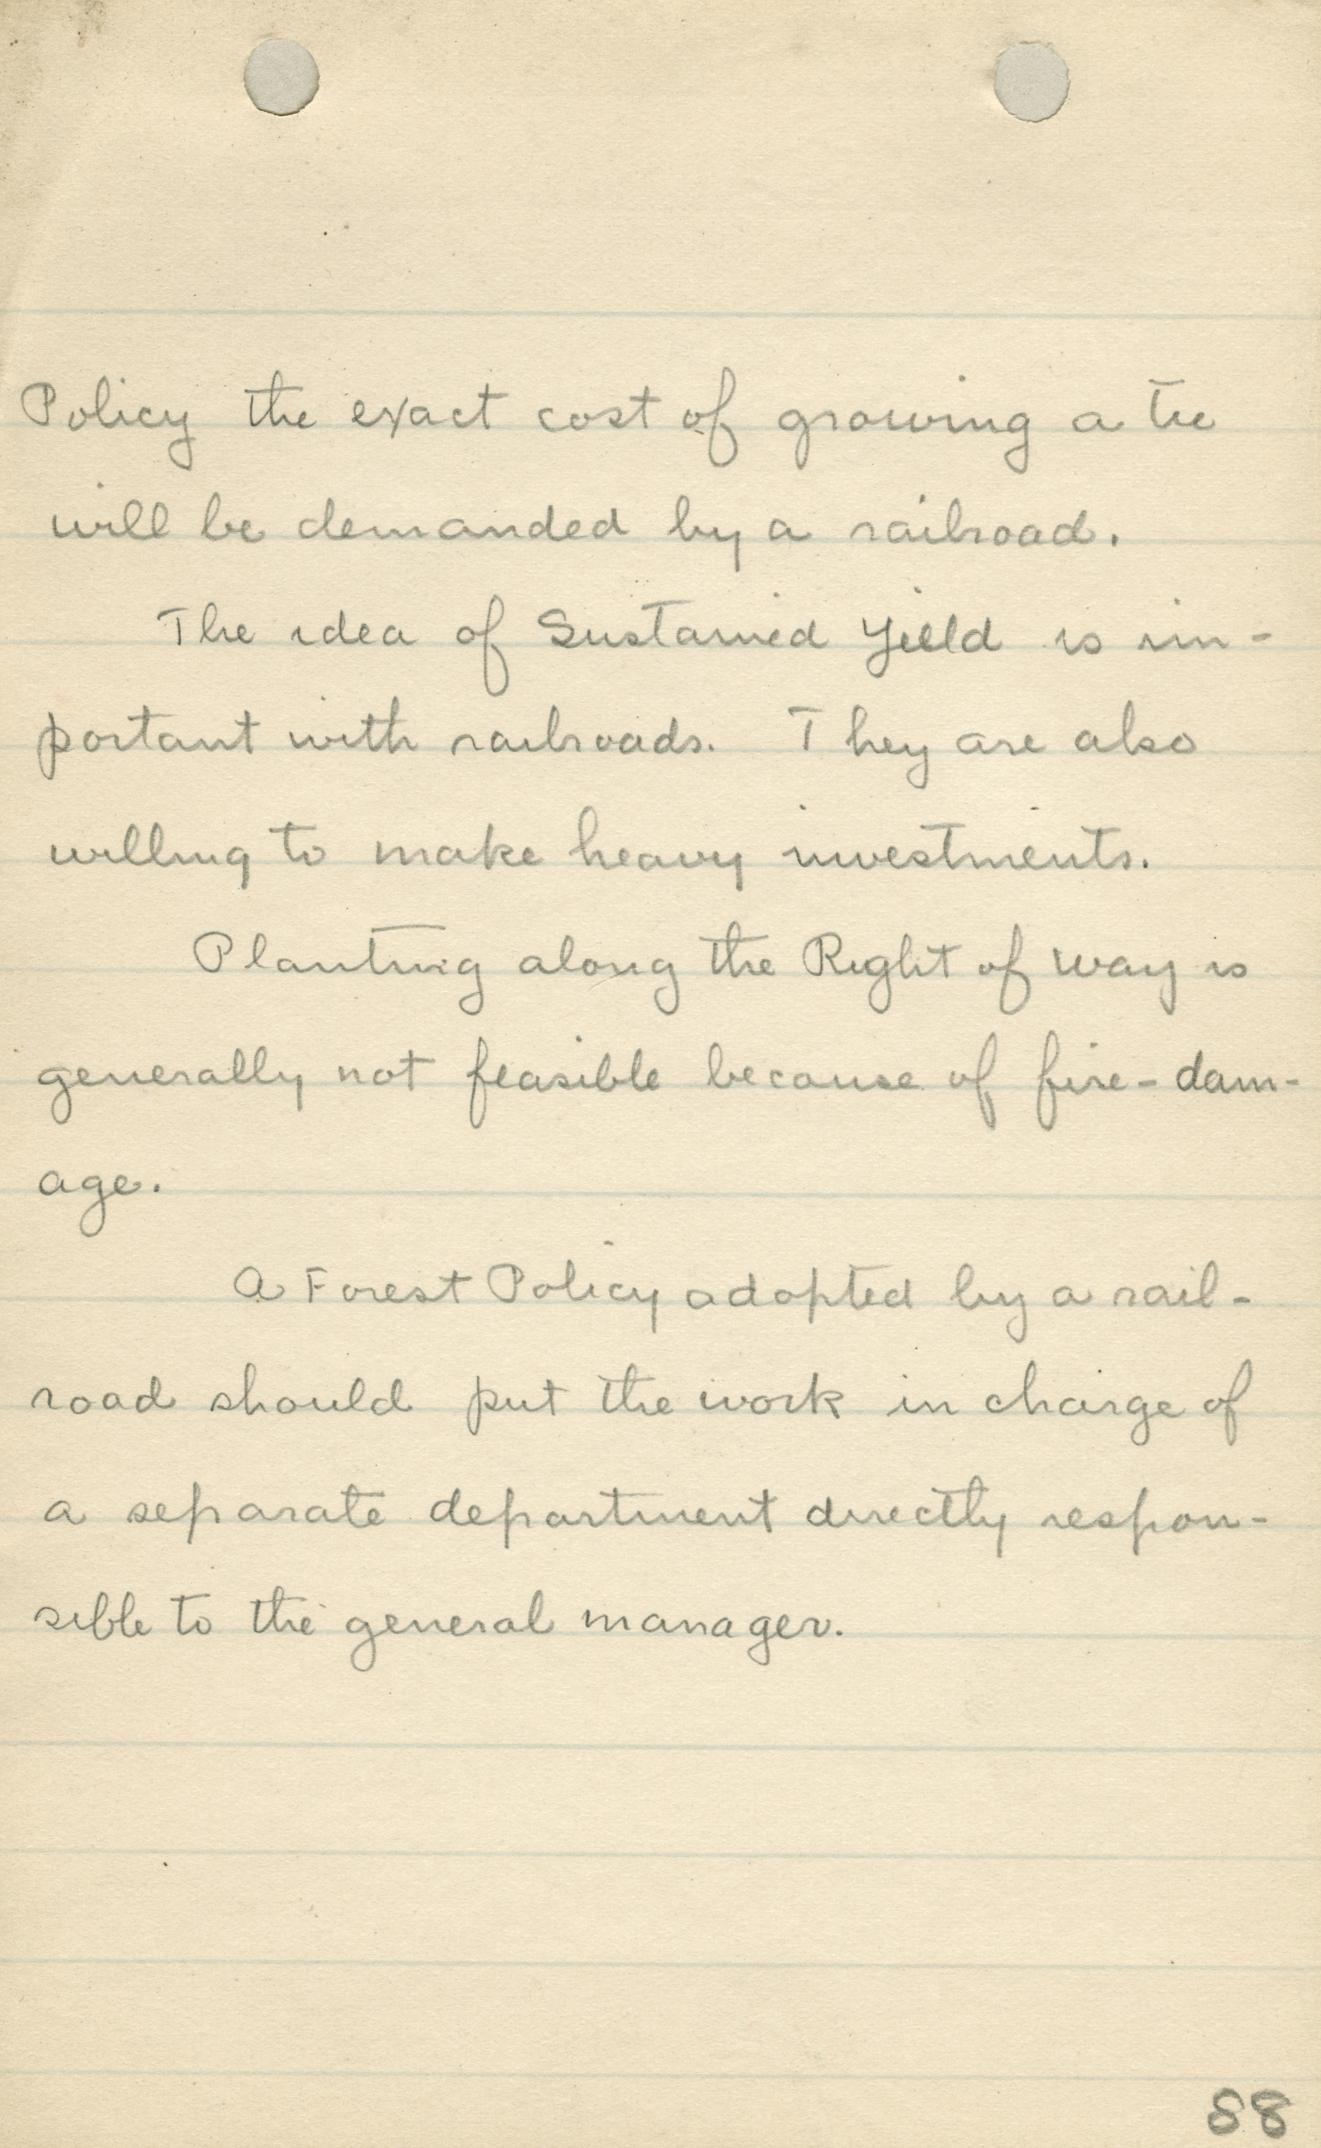 Policy the exact cost of growing a tree
will be demanded by a railroad.
The idea of Sustained Yield is im-
portant with railroads. They are also
willing to make heavy investments.
Planting along the Right of way is
generally not feasible because of fire-dam-
age.
A Forest Policy adopted by a rail-
road should put the work in charge of
a separate department directly respon-
sible to the general manager.
88